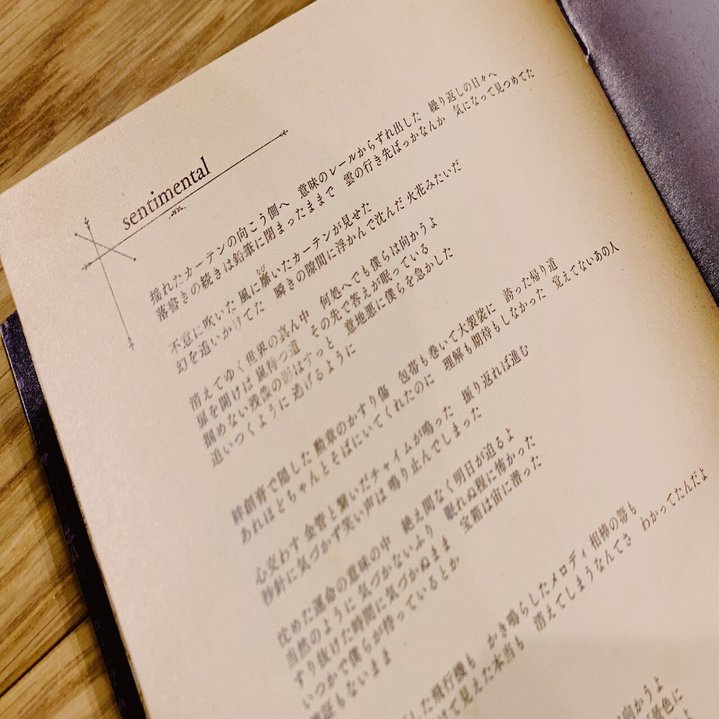 sentimental
揺れたカーテンの向こう側へ 意味のレールからずれ出した 繰り返しの日々へ
落書きの続きは鉛筆に閉まったままで 雲の行き先ばっかなんか 気になって見つめてた
不意に吹いた 風に靡いたカーテンが見せた
幻を追いかけてた 瞬きの隙間に浮かんで沈んだ 火花みたいだ
消えてゆく世界の真ん中 何処へでも僕らは向かうよ
扉を開けば 風待つ道 その先で答えが眠っている
掴めない残像の影はずっと 意地悪に僕らを急かした
追いつくように 逃げるように
絆創膏で隠した 勲章のかすり傷 包帯も巻いて大袈裟に 誇った帰り道
あれほどちゃんとそばにいてくれたのに 理解も期待もしなかった 覚えてないあの人
心交わす 金管と繋いだチャイムが鳴った 振り返れば進む
秒針に気づかず笑い声は 鳴り止んでしまった
沈めた運命の意味の中 絶え間なく明日が迫るよ
当然のように 気づかないより 眠れぬ程に怖かった
すり抜けた時間に気づかぬまま 宝箱は宙に潜った
いつかで僕らが待っているとか
証もないまま
した飛行機も かき鳴らしたメロディ 相棒の筈も
けて見えた本当も 消えてしまうなんてさ わかってたんだよ
向かうよ
て景色に